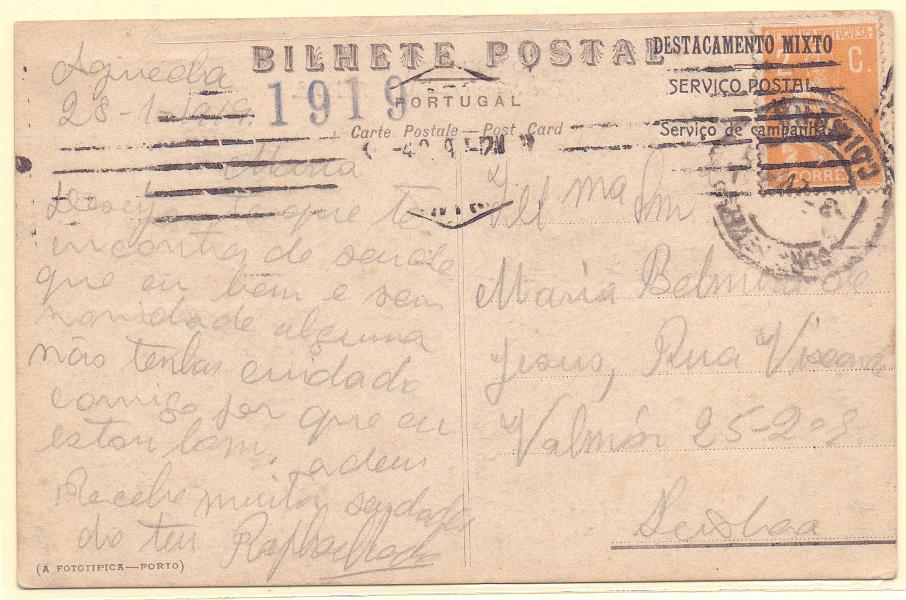 BILHETE POSTAL
DESTACAMENTO MIXTO
SERVIÇO POSTAL
Serviço de campanha
C.
CORREIO
1919
PORTUGAL
Carte Postale — Post Card
Agueda
28-1-1919
Maria
Desejo que te
incontra de saude
que eu bem e sem
novidade alguma
não tenhas cuidado
comigo por que eu
estou bem, adeus
Recebe muitas saudades
do teu Raphael
Ill ma Snr
Maria Belmira de
Jesus, Rua Viscond
Valmór 25-2º
Leisboa
(A FOTOTIPICA—PORTO)